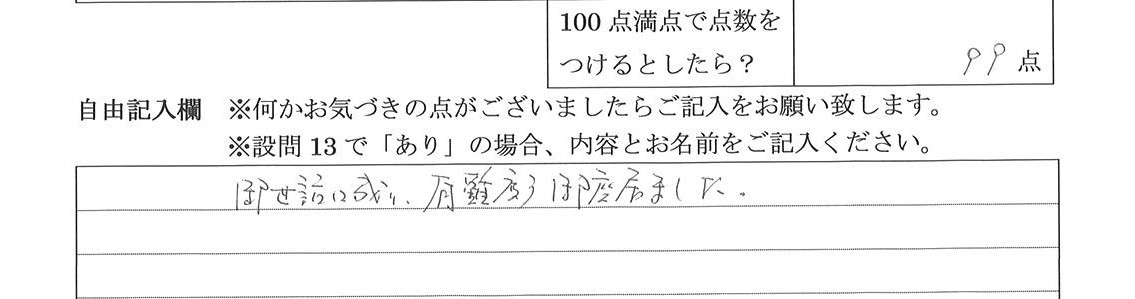 100点満点で点数を
つけるとしたら？
99点
自由記入欄 ※何かお気づきの点がございましたらご記入をお願い致します。
※設問13で「あり」の場合、内容とお名前をご記入ください。
御世話に成り、有難度う御座居ました。